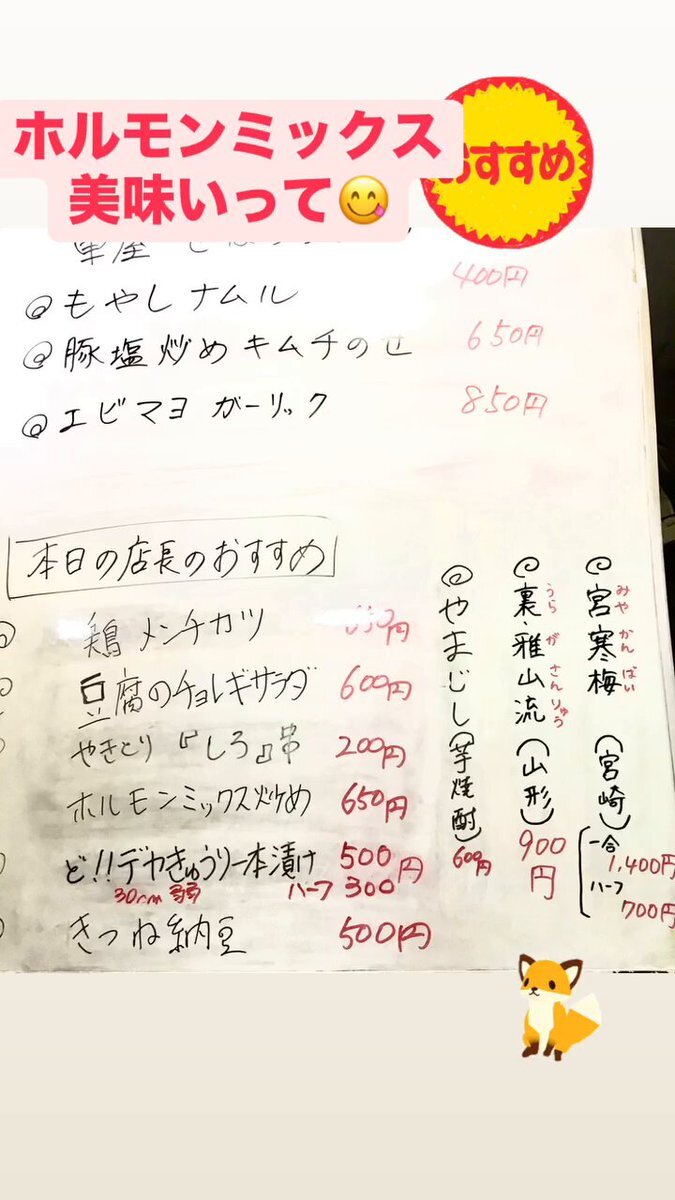 ホルモンミックス
美味いって😋
おすすめ
@もやしナムル 400円
@豚塩炒めキムチのせ 650円
@エビマヨガーリック 850円
本日の店長のおすすめ
鶏メンチカツ 円
豆腐のチョレギサラダ 600円
やきとり『しろ』串 200円
ホルモンミックス炒め 650円
ど!!デカきゅうり一本漬け 500円
30cm弱 ハーフ 300
きつね納豆 500円
宮寒梅(宮崎)
みやかんばい
一合 1,400円
ハーフ 700円
裏・雅山流(山形) 900円
うらがさんりゅう
やまじし(芋焼酎) 600円